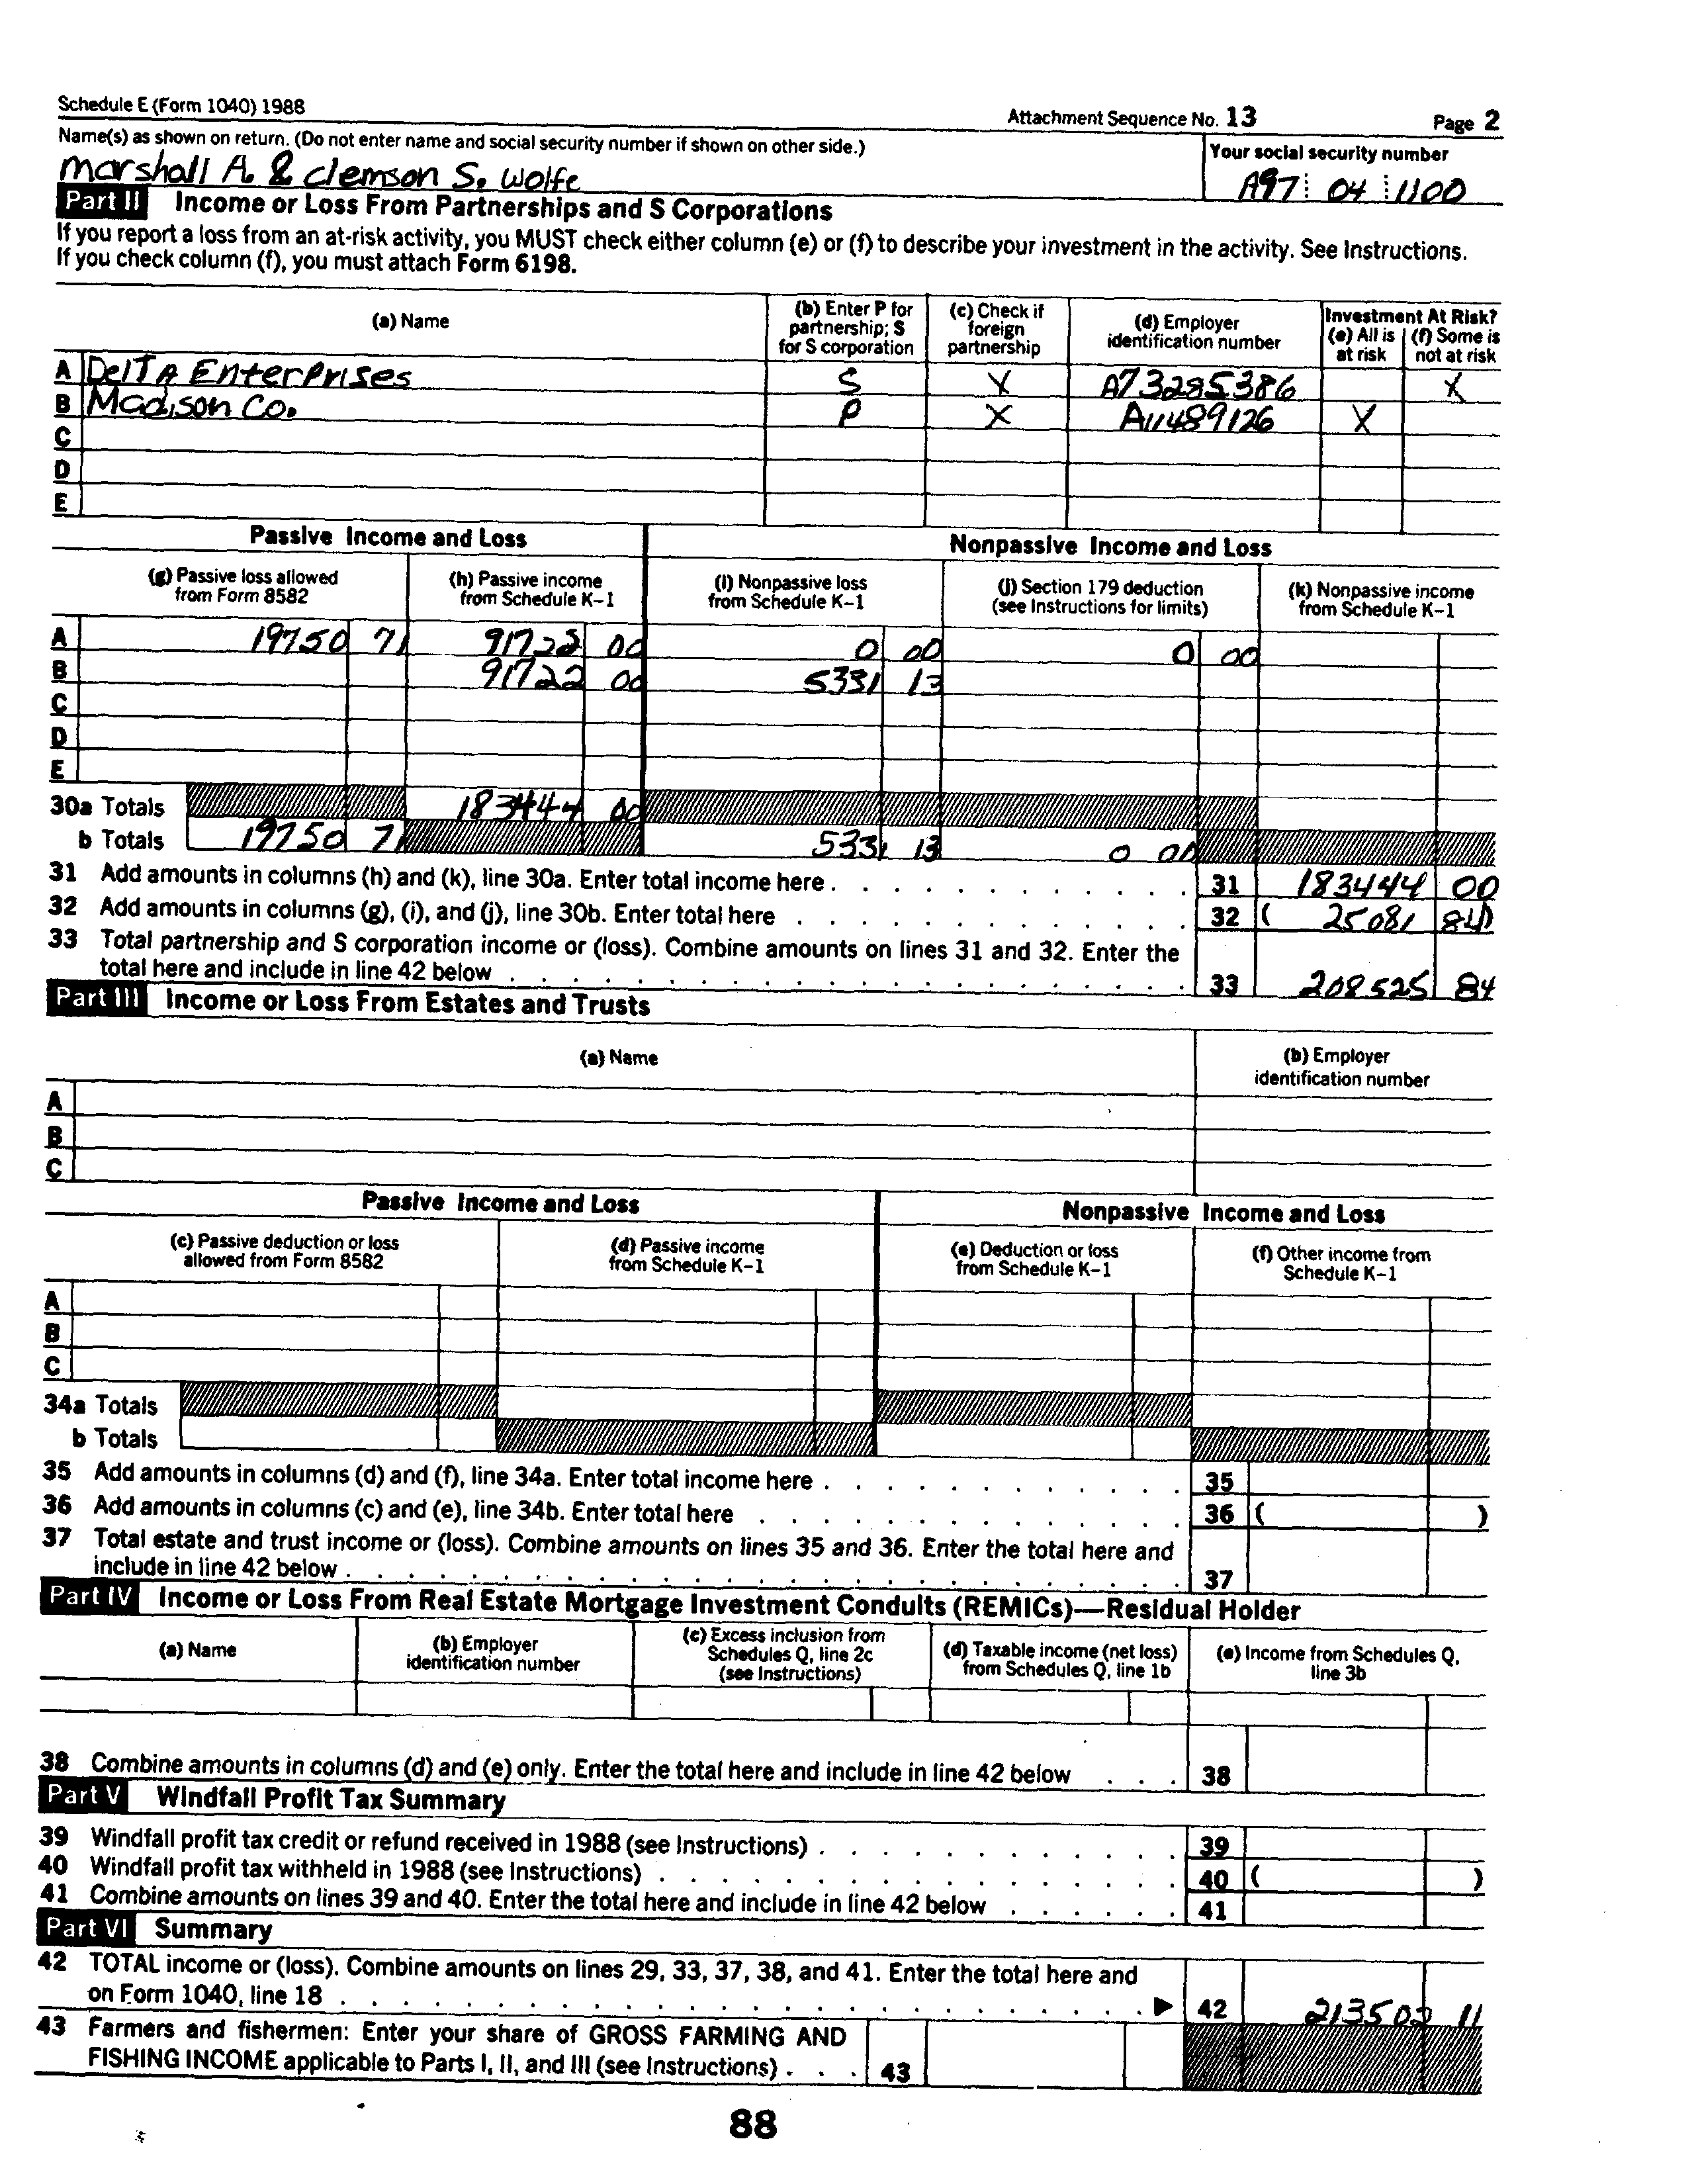 Schedule E (Form 1040) 1988 Attachment Sequence No. 13 Page 2
Name(s) as shown on return. (Do not enter name and social security number if shown on other side.) Your social security number
marshall A. & clemson S. wolfe A97 04 1100
Part II Income or Loss From Partnerships and S Corporations
If you report a loss from an at-risk activity, you MUST check either column (e) or (f) to describe your investment in the activity. See Instructions.
If you check column (f), you must attach Form 6198.
(a) Name (b) Enter P for partnership; S for S corporation (c) Check if foreign partnership (d) Employer identification number Investment At Risk? (e) All is at risk (f) Some is not at risk
A DelTA EnterPrises S X A73285386 X
B Madison Co. P X A11489126 X
C
D
E
Passive Income and Loss Nonpassive Income and Loss
(g) Passive loss allowed from Form 8582 (h) Passive income from Schedule K-1 (i) Nonpassive loss from Schedule K-1 (j) Section 179 deduction (see Instructions for limits) (k) Nonpassive income from Schedule K-1
A 19750 71 91722 00 0 00 0 00
B 91722 00 5331 13
C
D
E
30a Totals 183444 00
b Totals 19750 71 5331 13 0 00
31 Add amounts in columns (h) and (k), line 30a. Enter total income here . 31 183444 00
32 Add amounts in columns (g), (i), and (j), line 30b. Enter total here 32 ( 25081 84)
33 Total partnership and S corporation income or (loss). Combine amounts on lines 31 and 32. Enter the
total here and include in line 42 below 33 208525 84
Part III Income or Loss From Estates and Trusts
(a) Name (b) Employer identification number
A
B
C
Passive Income and Loss Nonpassive Income and Loss
(c) Passive deduction or loss allowed from Form 8582 (d) Passive income from Schedule K-1 (e) Deduction or loss from Schedule K-1 (f) Other income from Schedule K-1
A
B
C
34a Totals
b Totals
35 Add amounts in columns (d) and (f), line 34a. Enter total income here . 35
36 Add amounts in columns (c) and (e), line 34b. Enter total here 36 ( )
37 Total estate and trust income or (loss). Combine amounts on lines 35 and 36. Enter the total here and
include in line 42 below . 37
Part IV Income or Loss From Real Estate Mortgage Investment Conduits (REMICs)—Residual Holder
(a) Name (b) Employer identification number (c) Excess inclusion from Schedules Q, line 2c (see Instructions) (d) Taxable income (net loss) from Schedules Q, line 1b (e) Income from Schedules Q, line 3b
38 Combine amounts in columns (d) and (e) only. Enter the total here and include in line 42 below . . . 38
Part V Windfall Profit Tax Summary
39 Windfall profit tax credit or refund received in 1988 (see Instructions) . 39
40 Windfall profit tax withheld in 1988 (see Instructions) . 40 ( )
41 Combine amounts on lines 39 and 40. Enter the total here and include in line 42 below 41
Part VI Summary
42 TOTAL income or (loss). Combine amounts on lines 29, 33, 37, 38, and 41. Enter the total here and
on Form 1040, line 18 . ▶ 42 213503 11
43 Farmers and fishermen: Enter your share of GROSS FARMING AND
FISHING INCOME applicable to Parts I, II, and III (see Instructions) . . . 43
88